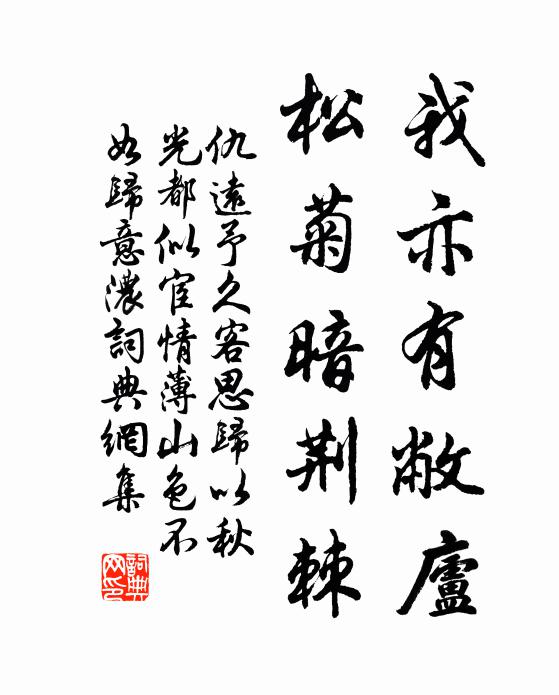 我亦有敝廬
松菊暗荆棘
仇遠予久客思歸以秋
光都似宦情薄山色不
如歸意濃詞典網集
詞典網印